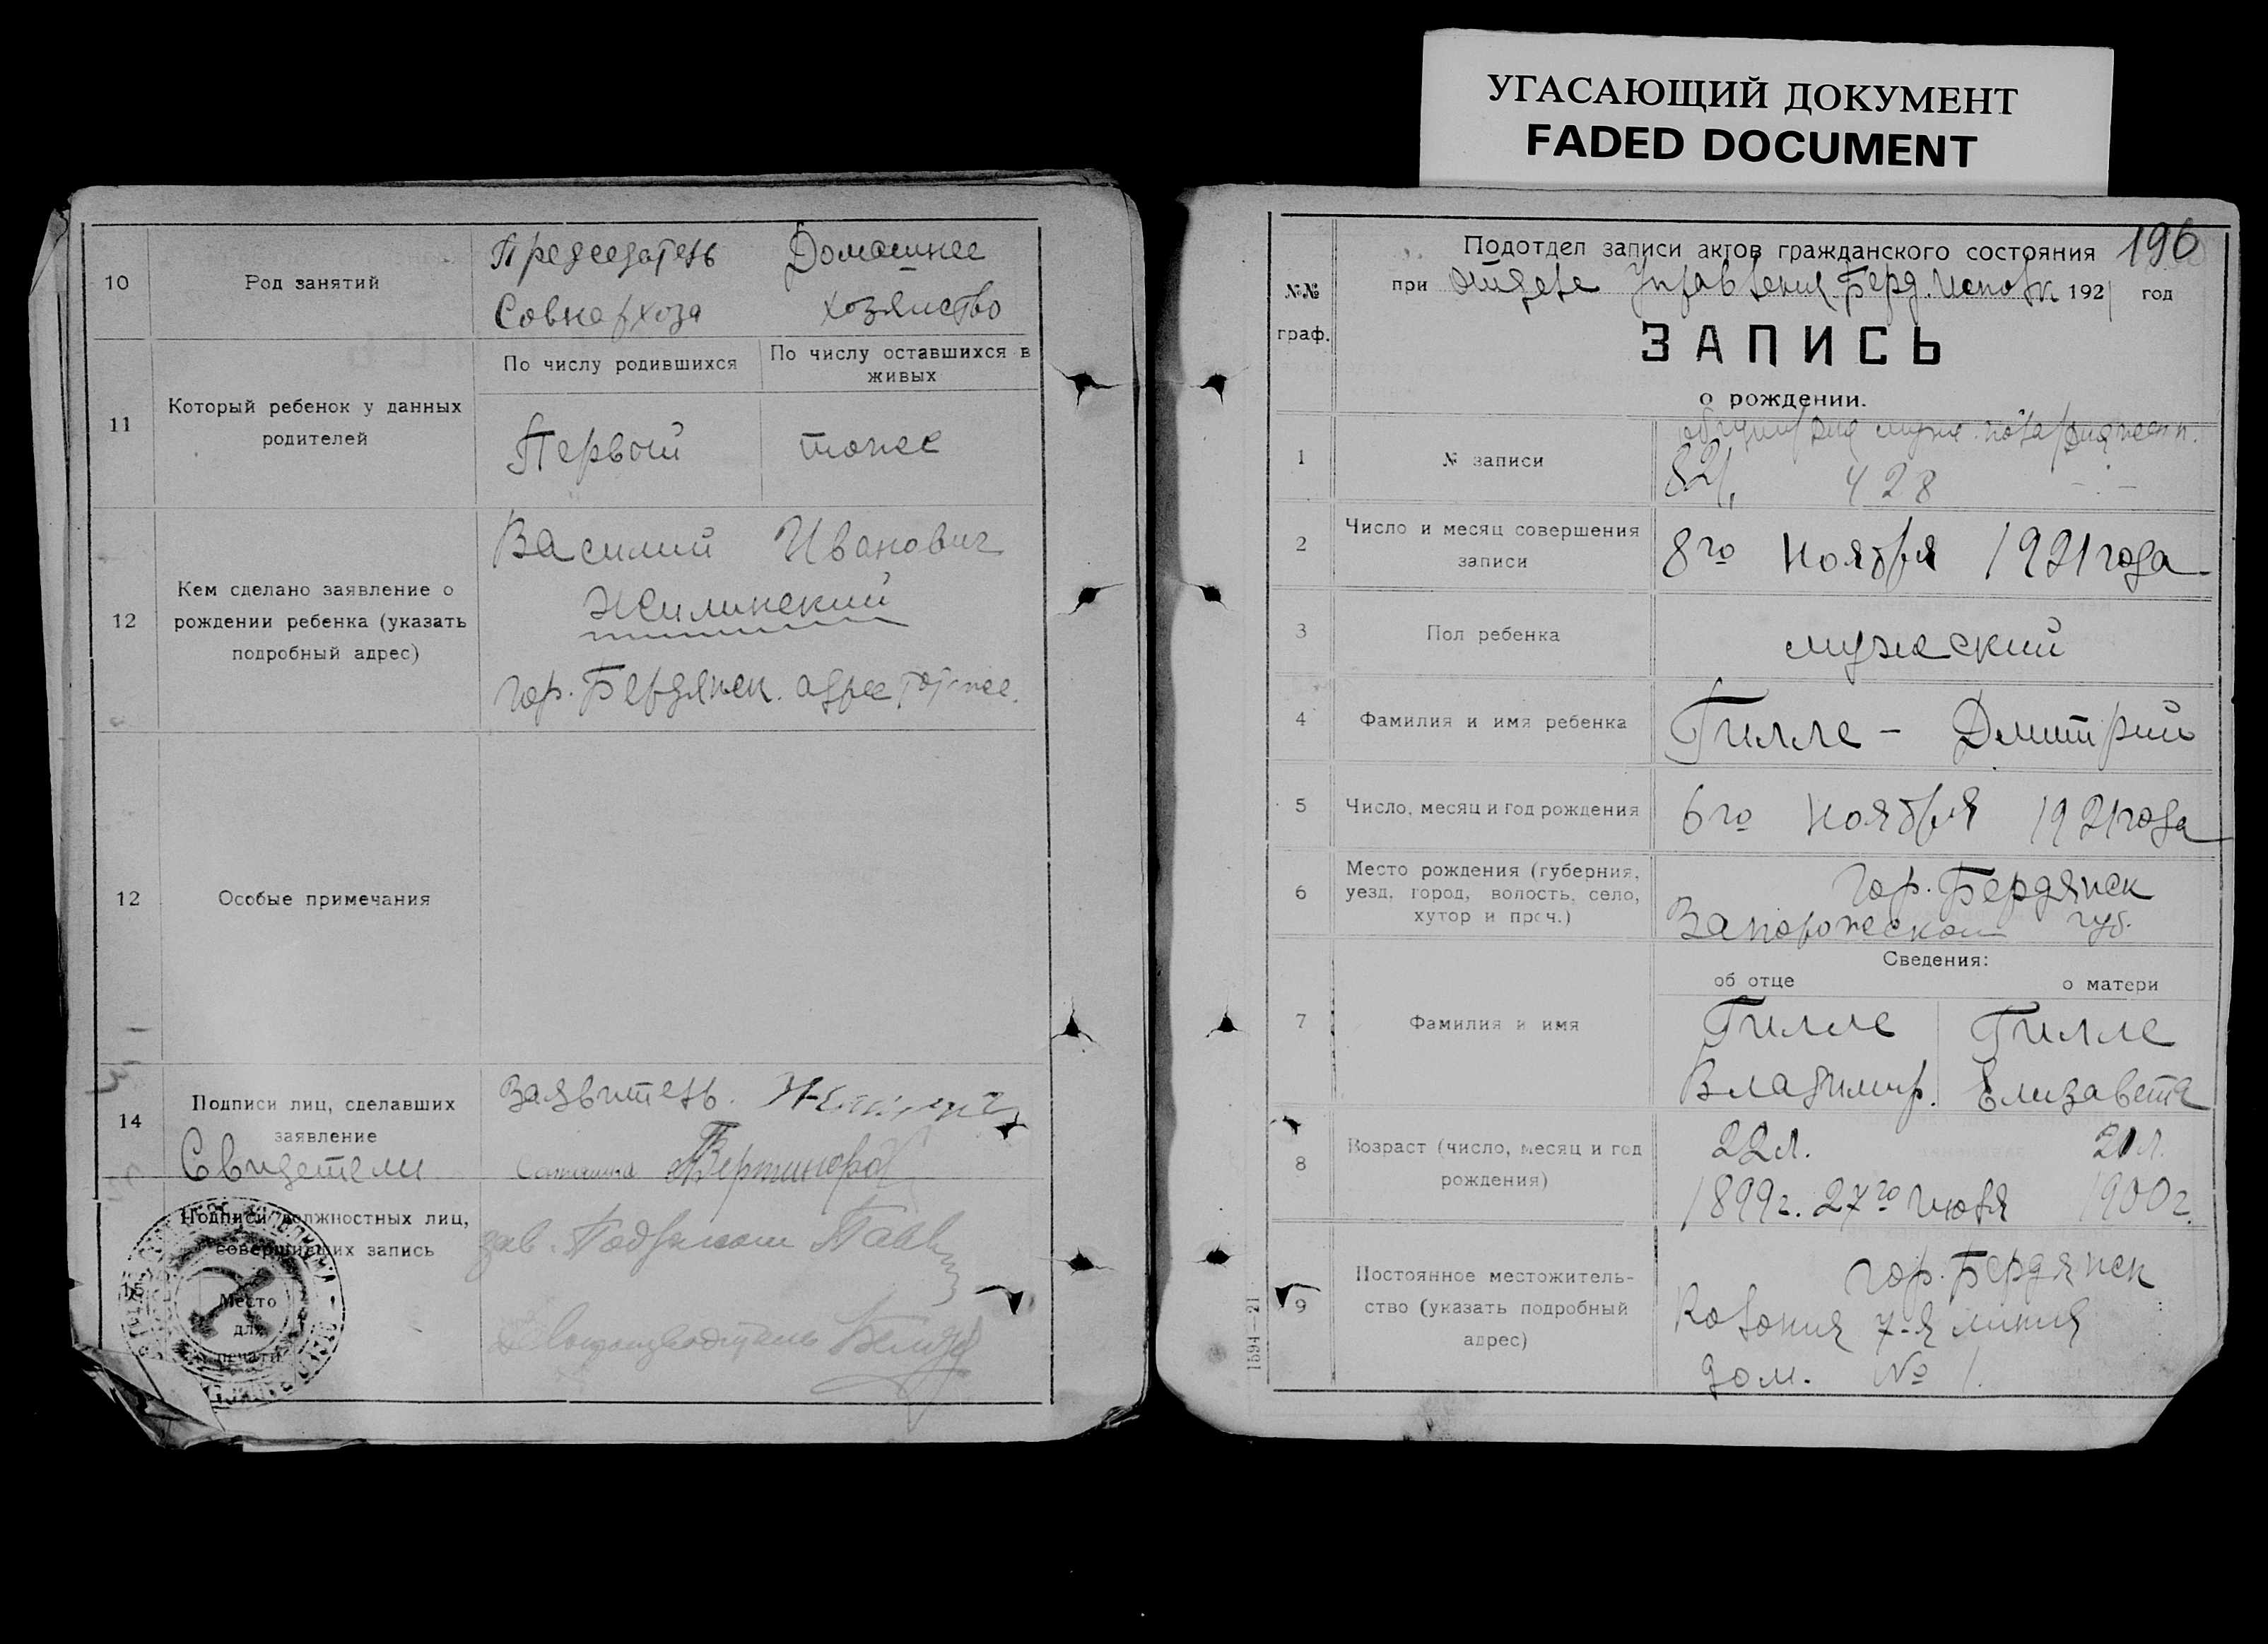 УГАСАЮЩИЙ ДОКУМЕНТ
FADED DOCUMENT
10
Род занятий
Председатель
Совнархоза
Домашнее
хозяйство
11
Который ребенок у данных
родителей
По числу родившихся
По числу оставшихся в
живых
Первый
тоже
12
Кем сделано заявление о
рождении ребенка (указать
подробный адрес)
Василий Иванович
Жилинский
гор. Бердянск. адрес тот же.
12
Особые примечания
14
Подписи лиц, сделавших
заявление
Свидетели
Заявитель.
15
Подписи должностных лиц,
совершивших запись
Место
для
печати
зав.
196
№№
граф.
Подотдел записи актов гражданского состояния
при отделе Управления Берд. Исполк 1921 год
ЗАПИСЬ
о рождении.
1
№ записи
82/, 428
2
Число и месяц совершения
записи
8го Ноября 1921 года
3
Пол ребенка
мужеский
4
Фамилия и имя ребенка
Гилле - Дмитрий
5
Число, месяц и год рождения
6го Ноября 1921 года
6
Место рождения (губерния,
уезд, город, волость, село,
хутор и проч.)
гор. Бердянск
Запорожской губ.
7
Фамилия и имя
Сведения:
об отце
о матери
Гилле
Владимир.
Гилле
Елизавета
8
Возраст (число, месяц и год
рождения)
22 л.
1899 г. 27го Июля
21 л.
1900 г.
9
Постоянное местожитель-
ство (указать подробный
адрес)
гор. Бердянск
Колония 7-я линия
дом. № 1.
1594—21